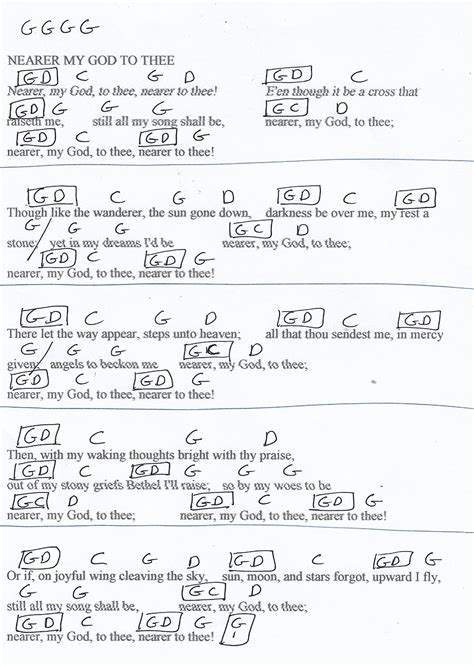 G G G G
NEARER MY GOD TO THEE
GD C G D GD C
Nearer, my God, to thee, nearer to thee! E'en though it be a cross that
GD G G G GC D
raiseth me, still all my song shall be, nearer, my God, to thee;
GD C GD G
nearer, my God, to thee, nearer to thee!
GD C G D GD C GD
Though like the wanderer, the sun gone down, darkness be over me, my rest a
G G G GC D
stone; yet in my dreams I'd be nearer, my God, to thee;
GD C GD G
nearer, my God, to thee, nearer to thee!
GD C G D GD C GD
There let the way appear, steps unto heaven; all that thou sendest me, in mercy
G G G GC D
given; angels to beckon me nearer, my God, to thee;
GD C GD G
nearer, my God, to thee, nearer to thee!
GD C G D
Then, with my waking thoughts bright with thy praise,
GD C GD G G G
out of my stony griefs Bethel I'll raise; so by my woes to be
GC D GD C GD G
nearer, my God, to thee; nearer, my God, to thee, nearer to thee!
GD C G D GD C GD G
Or if, on joyful wing cleaving the sky, sun, moon, and stars forgot, upward I fly,
G G GC D
still all my song shall be, nearer, my God, to thee;
GD C GD G G 1
nearer, my God, to thee, nearer to thee!